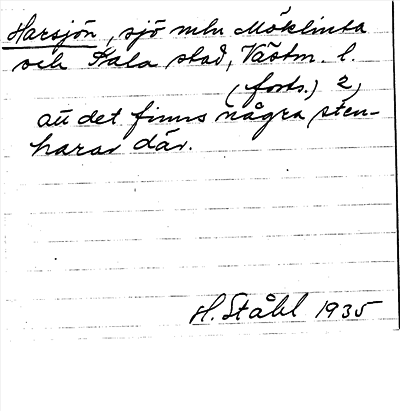 Harsjön, sjö mln Möklinta
och Sala stad, Västm. l.
(forts.) 2,
att det finns några sten-
harar där.
H. Ståhl 1935